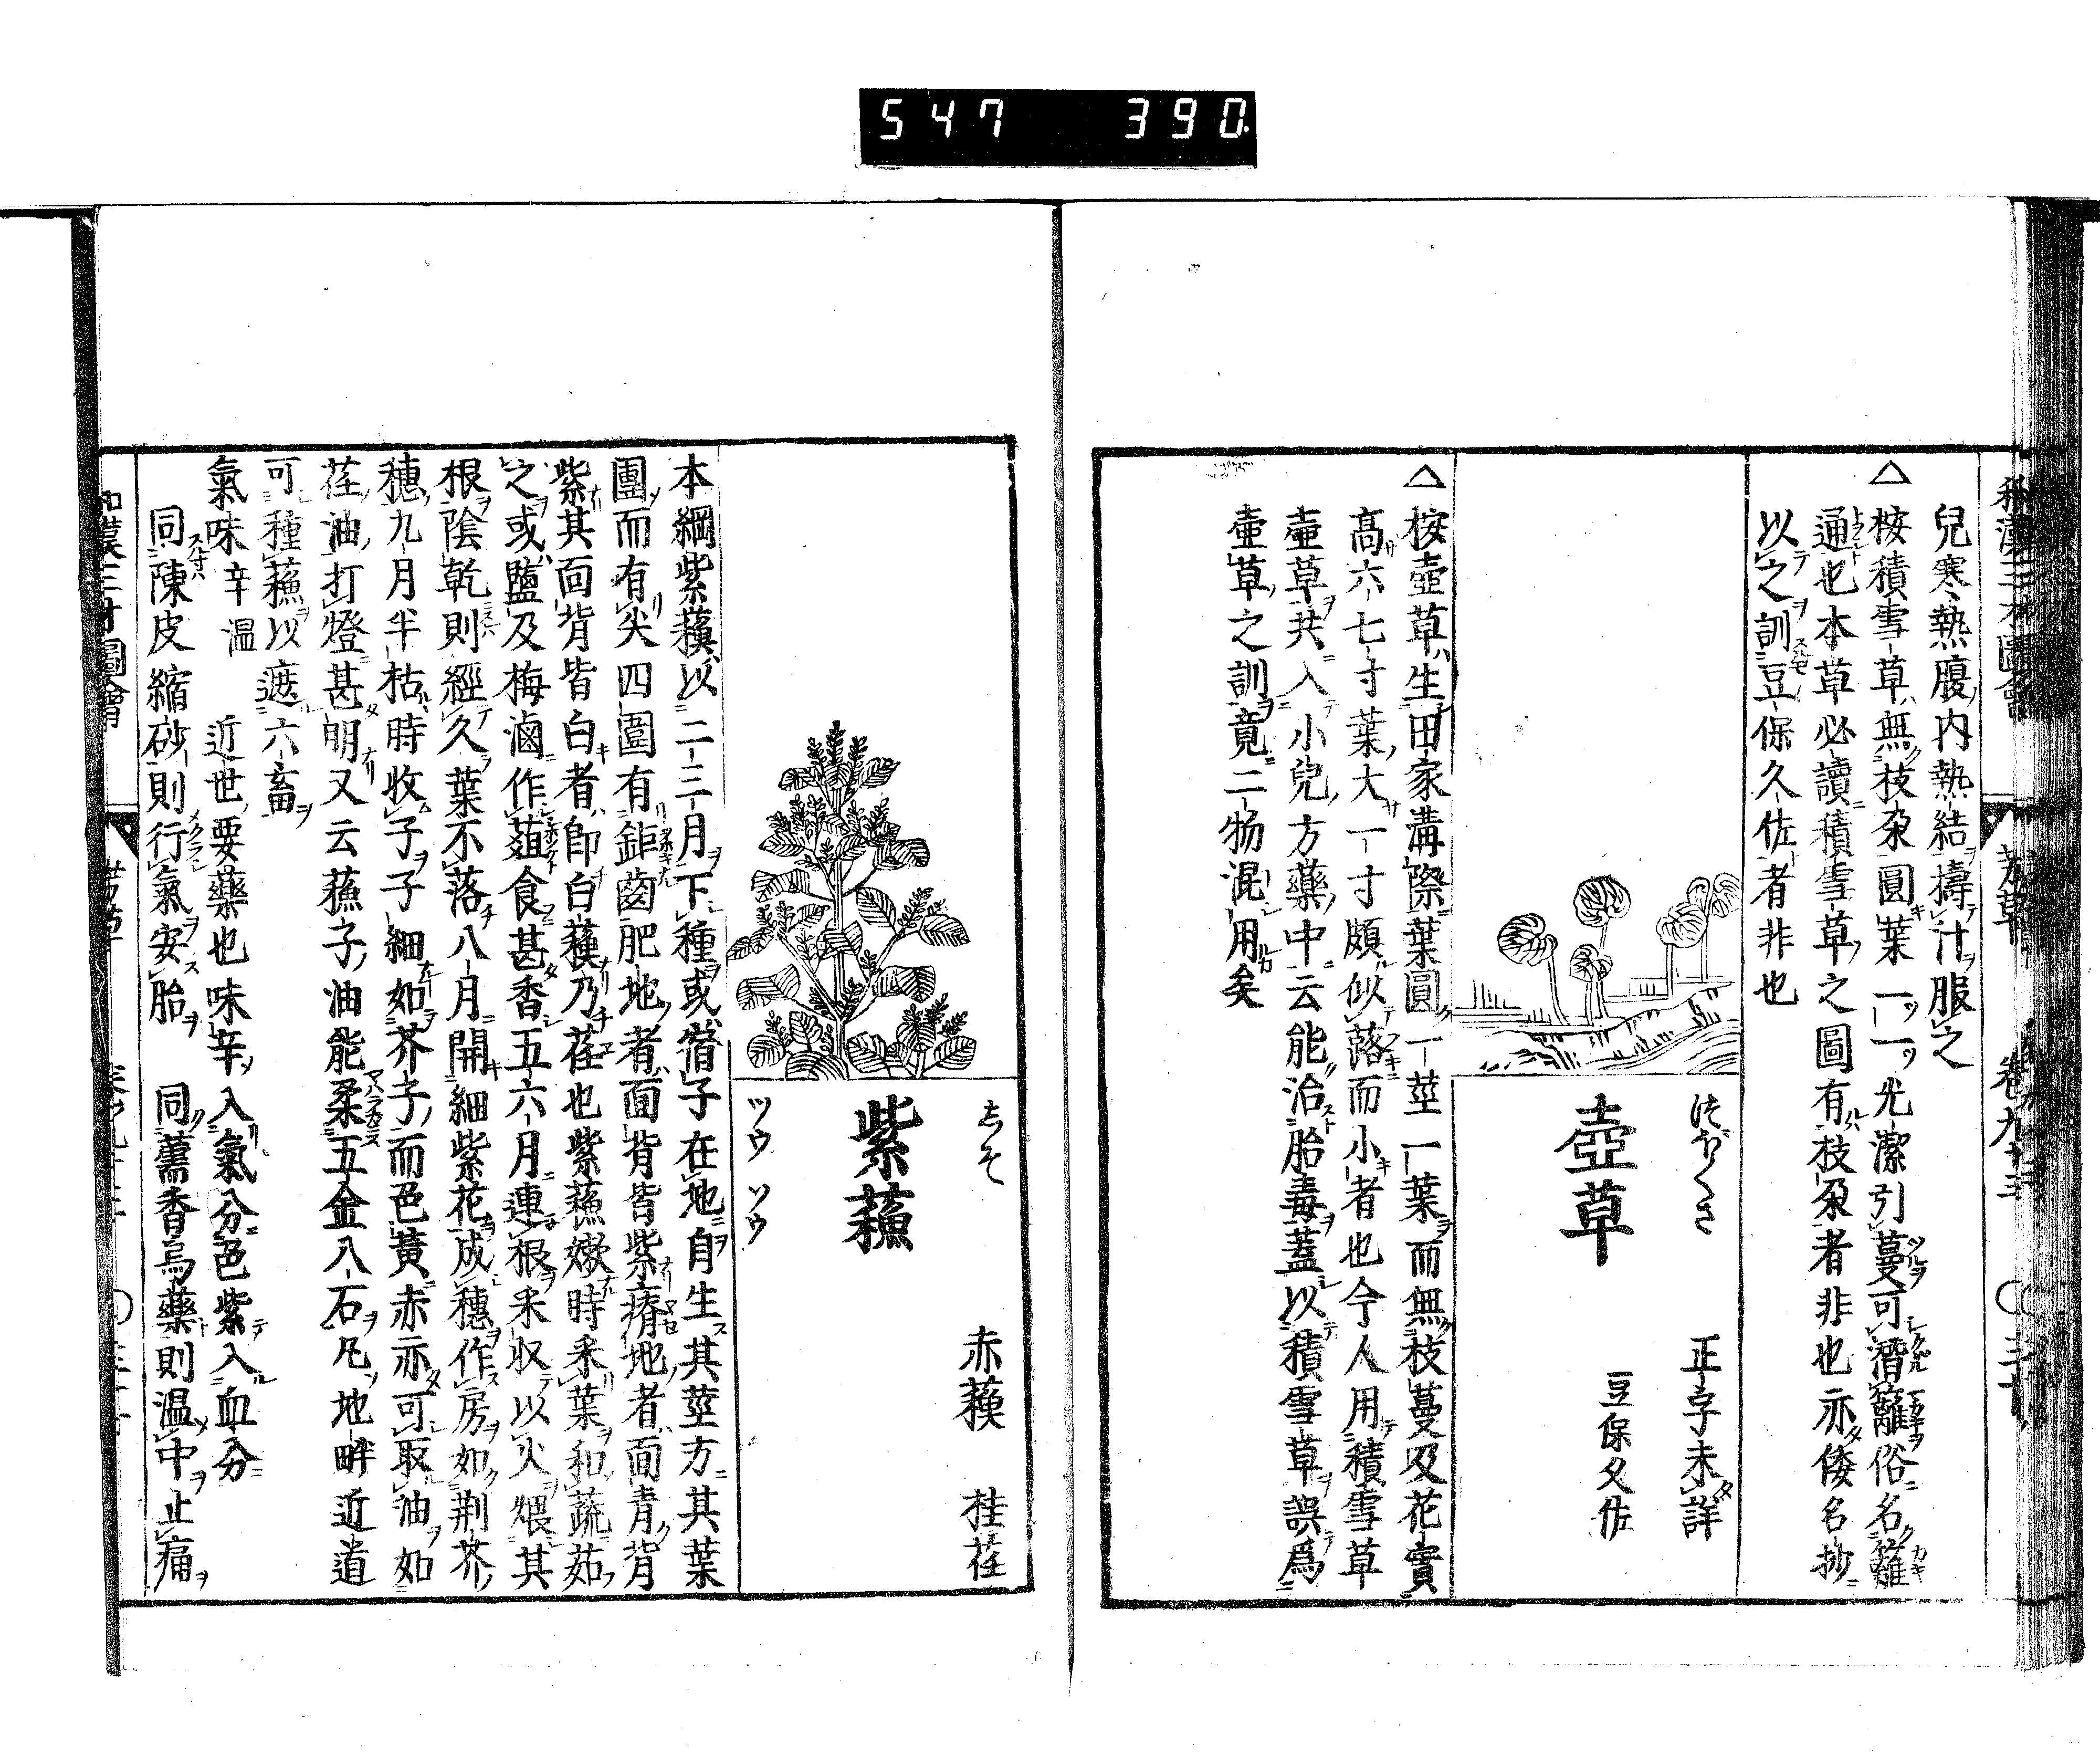 547 390
和漢三才圖會 芳草 卷九十三
兒寒熱腹內熱結擣汁服之
△按積雪草無枝朶圓葉一一光潔引蔓可潛籬俗名籬
通也本草必讀積雪草之圖有枝朶者非也亦倭名抄
以之訓豆保久佐者非也
壺草
正字未詳
豆保久佐
つぼくさ
△按壺草生田家溝際葉圓一莖一葉而無枝蔓及花實
高六七寸葉大一寸頗似蕗而小者也今人用積雪草
壺草共入小兒方藥中云能治胎毒蓋以積雪草誤爲
壺草之訓竟二物混用矣
しそ
赤蘓 桂荏
紫蘓
ツウ ソウ
本綱紫蘓以二三月下種或宿子在地自生其莖方其葉
團而有尖四圍有鉅齒肥地者面背皆紫瘠地者面青背
紫其面背皆白者卽白蘓乃荏也紫蘓嫩時采葉和蔬茹
之或鹽及梅滷作葅食甚香五六月連根采収以火煨其
根陰乾則經久葉不落八月開細紫花成穗作房如荆芥
穗九月半枯時收子子細如芥子而色黃赤亦可取油如
荏油打燈甚明又云蘓子油能柔五金八石凡地畔近道
可種蘓以遮六畜
氣味辛溫 近世要藥也味辛入氣分色紫入血分
同陳皮縮砂則行氣安胎 同藿香烏藥則温中止痛
和漢三才圖會 芳草